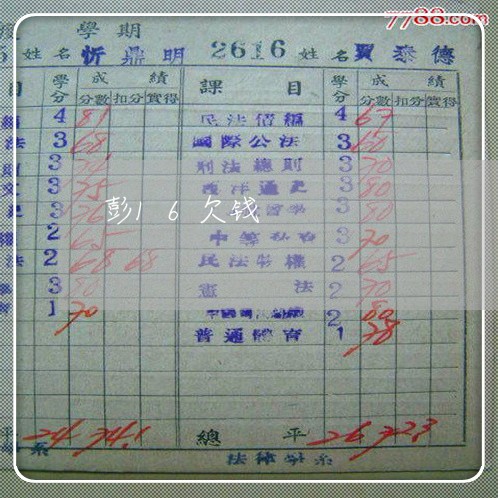 7788.com
學期
姓名 忻鼎明 2616 姓名 賈泰德
目 學分 成績 課目 學分 成績
分數 扣分 實得 分數 扣分 實得
4 81 民法債編 4 67
法 3 68 國際公法 3 60
3 刑法總則 3 70
3 75 西洋通史 3 80
3 76 3 80
2 65 3 70
法 2 68 68 民法物權 2 65
3 80 憲法 2 70
1 70 2 80
普通體育 1 78
彭16欠钱
平 24 74.1 總平 26 72.3
系 法律學系